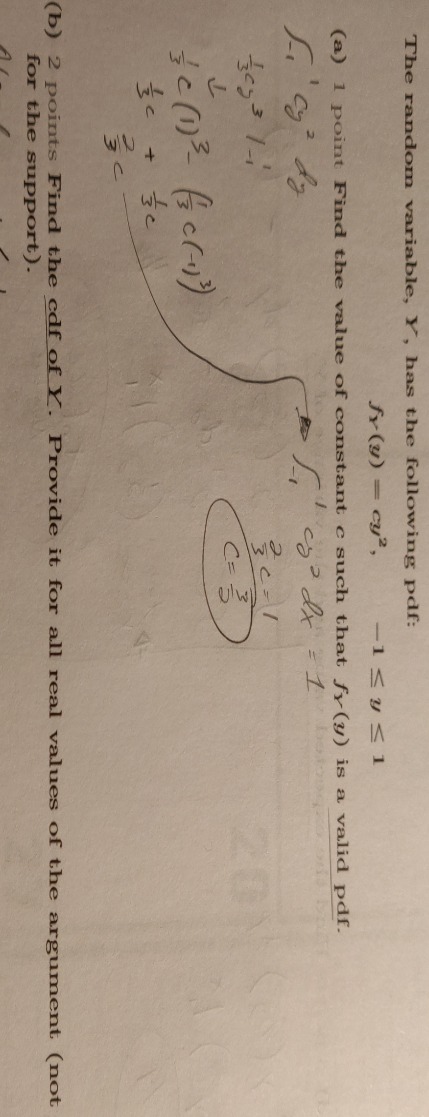 The random variable, Y, has the following pdf:
f_Y(y) = cy², −1 ≤ y ≤ 1
(a) 1 point Find the value of constant c such that f_Y(y) is a valid pdf.
∫₋₁¹ cy² dy
⅓cy³ |₋₁¹
↓
⅓c(1)³ − (⅓c(−1)³)
⅓c + ⅓c
⅔c
∫₋₁¹ cy² dx = 1
⅔c = 1
C = 3/2
(b) 2 points Find the cdf of Y. Provide it for all real values of the argument (not
for the support).